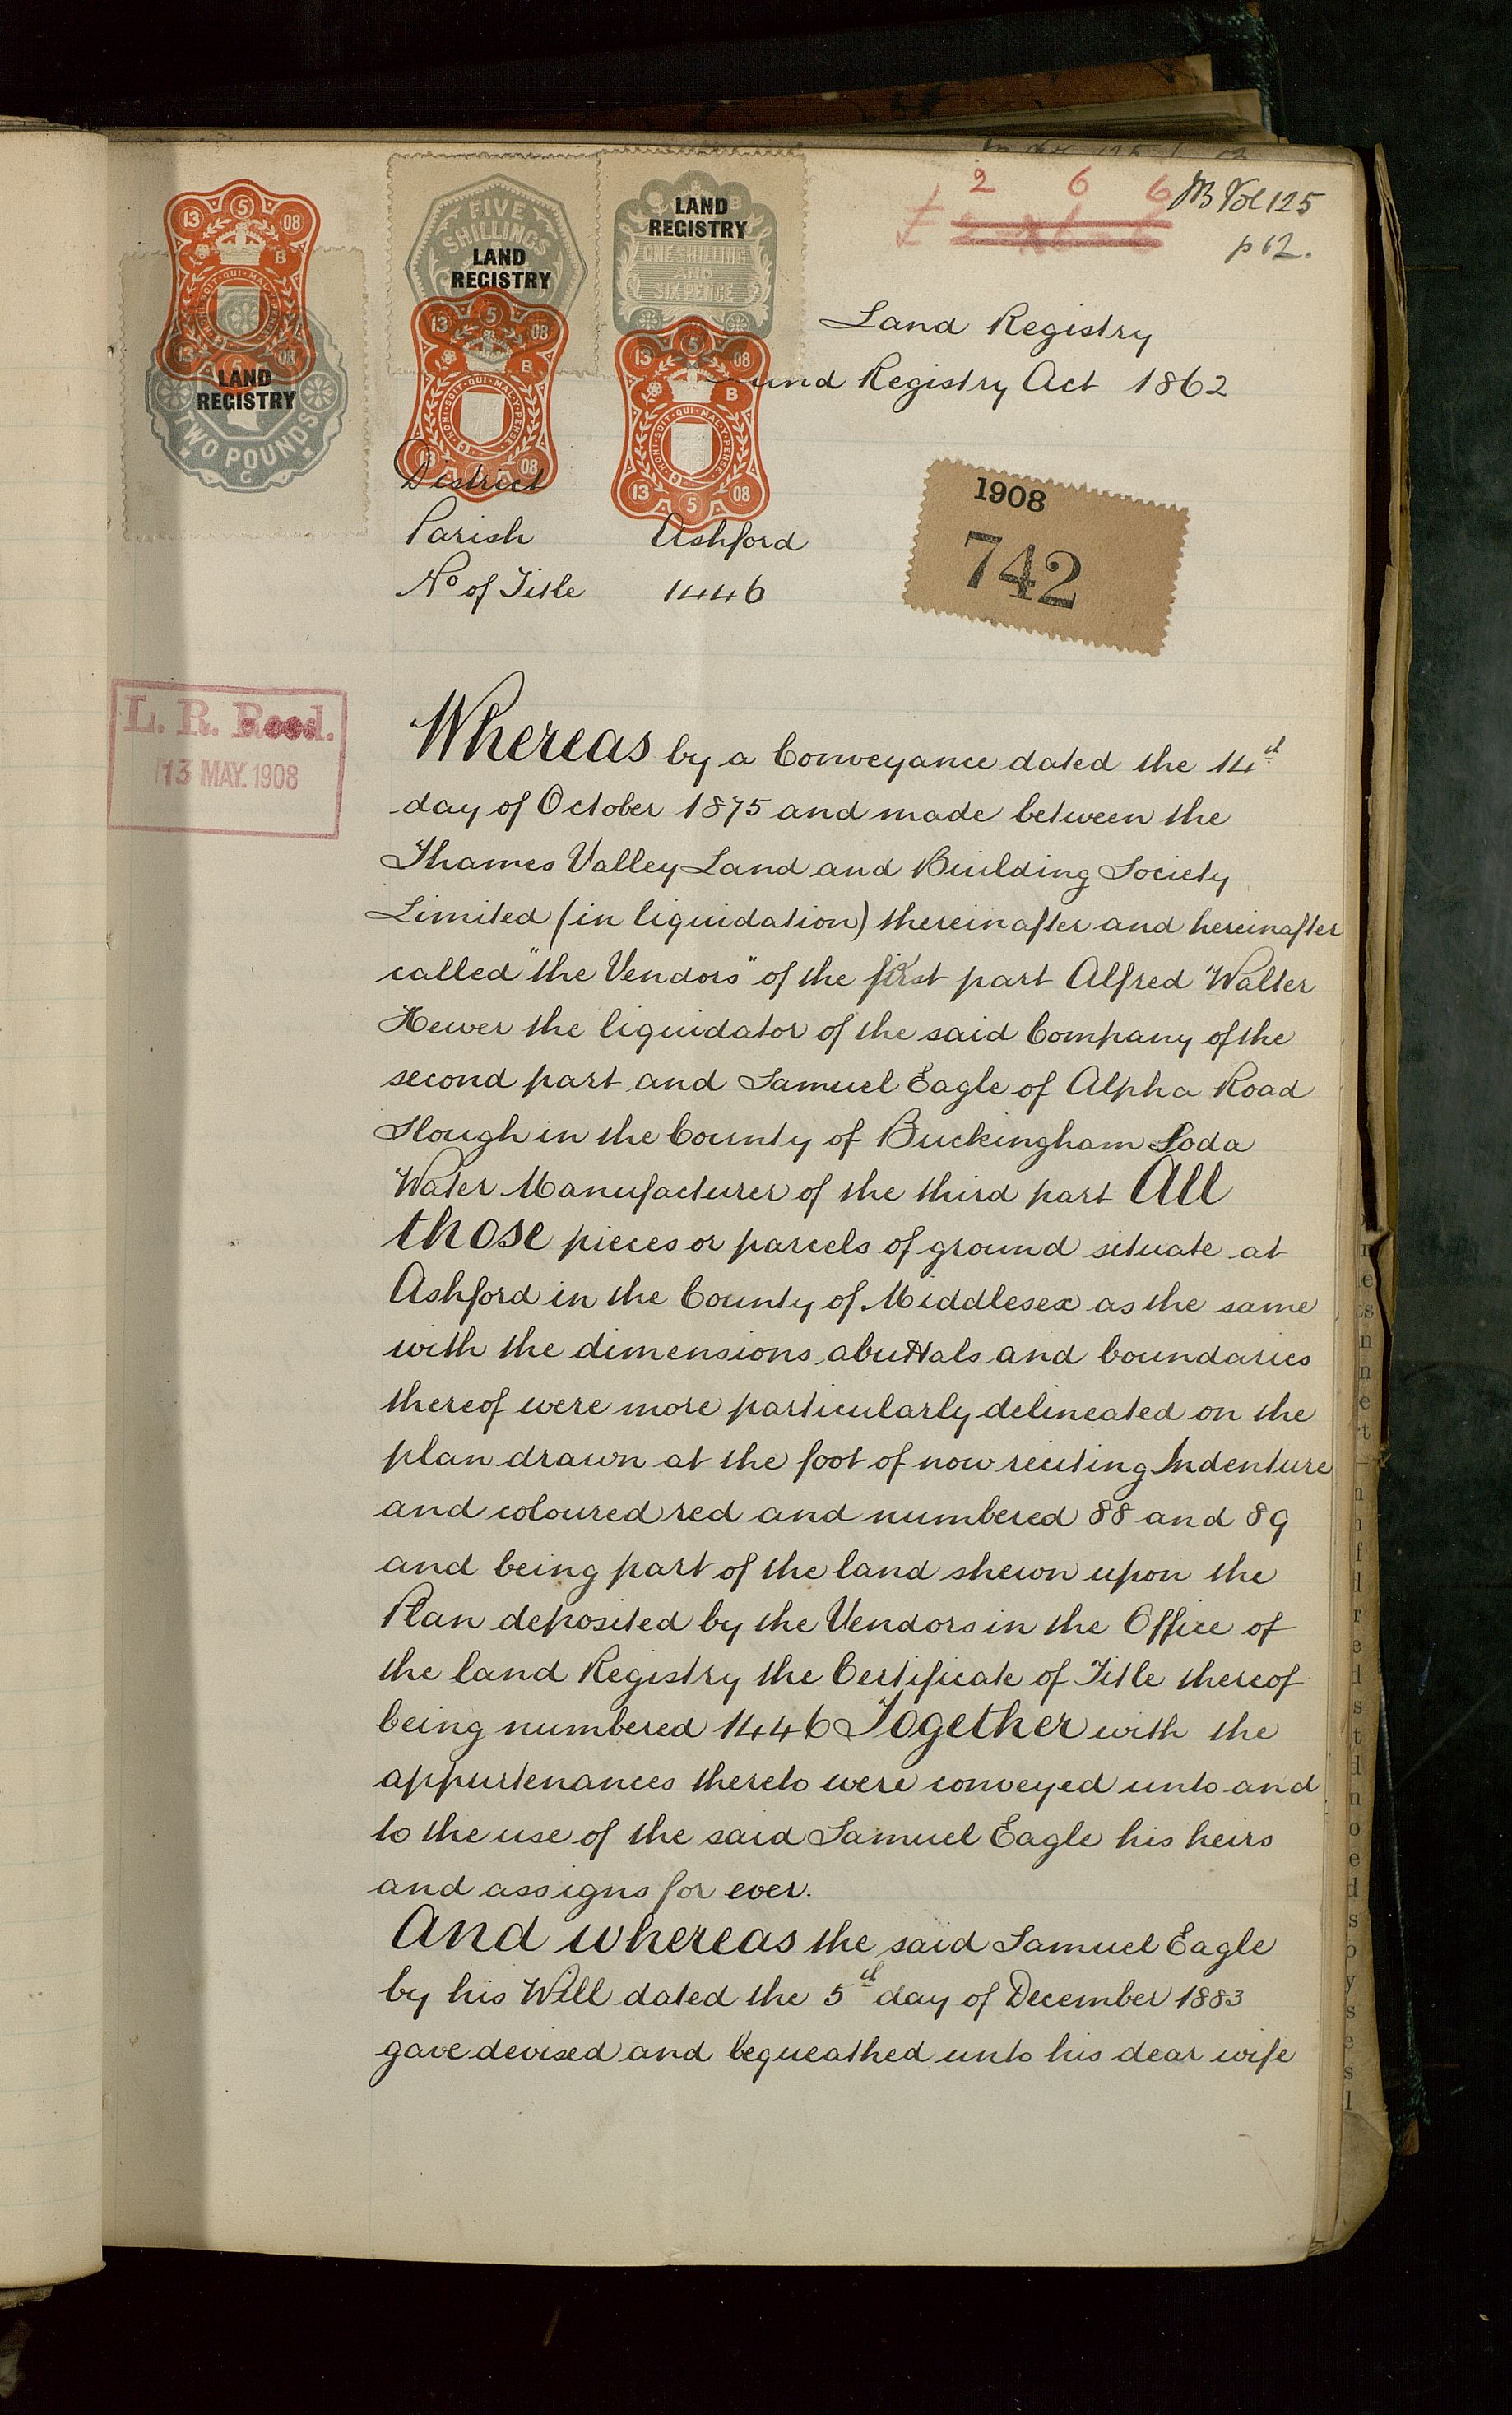 £ 2 6 6
MB Vol 125
p 62.
13 5 08
B
HONI·SOIT·QUI·MAL·Y·PENSE
13 5 08
LAND
REGISTRY
TWO POUNDS
G
FIVE
SHILLINGS
LAND
REGISTRY
13 5 08
B
HONI·SOIT·QUI·MAL·Y·PENSE
13 08
LAND
REGISTRY
ONE SHILLING
AND
SIXPENCE
13 5 08
B
HONI·SOIT·QUI·MAL·Y·PENSE
13 5 08
Land Registry
Land Registry Act 1862
District
Parish Ashford
No of Title 1446
1908
742
L. R. Recd.
13 MAY. 1908
Whereas by a Conveyance dated the 14th
day of October 1875 and made between the
Thames Valley Land and Building Society
Limited (in liquidation) thereinafter and hereinafter
called "the Vendors" of the first part Alfred Walter
Hewer the liquidator of the said Company of the
second part and Samuel Eagle of Alpha Road
Slough in the County of Buckingham Soda
Water Manufacturer of the third part All
those pieces or parcels of ground situate at
Ashford in the County of Middlesex as the same
with the dimensions abuttals and boundaries
thereof were more particularly delineated on the
plan drawn at the foot of now reciting Indenture
and coloured red and numbered 88 and 89
and being part of the land shewn upon the
Plan deposited by the Vendors in the Office of
the land Registry the Certificate of Title thereof
being numbered 1446 Together with the
appurtenances thereto were conveyed unto and
to the use of the said Samuel Eagle his heirs
and assigns for ever.
And whereas the said Samuel Eagle
by his Will dated the 5th day of December 1883
gave devised and bequeathed unto his dear wife